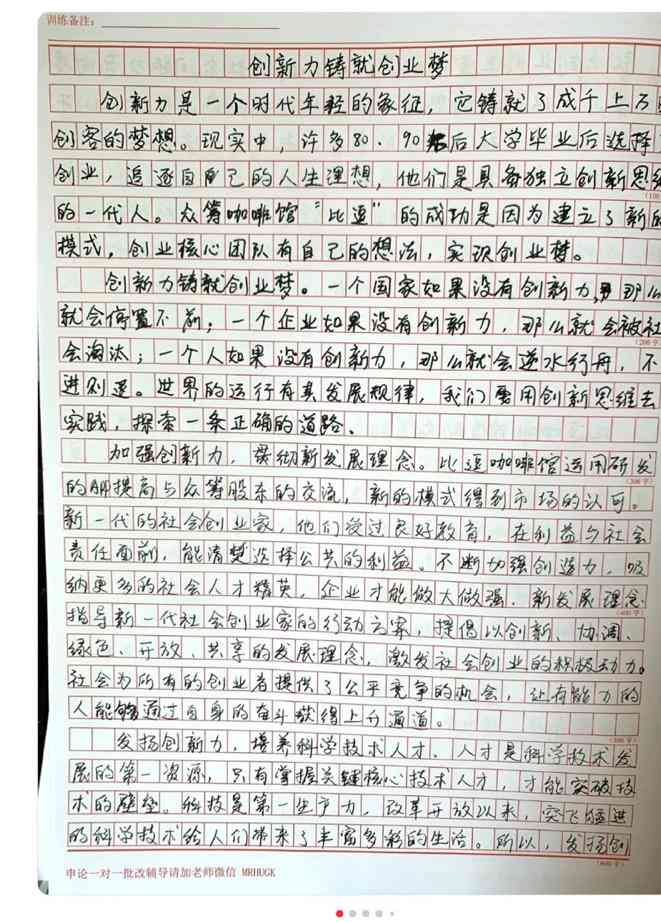 训练备注：
创新力铸就创业梦
创新力是一个时代年轻的象征，它铸就了成千上万
创客的梦想。现实中，许多80、90后大学毕业后选择
创业，追逐自己的人生理想，他们是具备独立创新思维
的一代人。众筹咖啡馆“比逗”的成功是因为建立了新的
模式，创业核心团队有自己的想法，实现创业梦。
创新力铸就创业梦。一个国家如果没有创新力，那么
就会停置不前；一个企业如果没有创新力，那么就会被社
会淘汰；一个人如果没有创新力，那么就会逆水行舟，不
进则退。世界的运行有其发展规律，我们要用创新思维去
实践，探索一条正确的道路、
加强创新力，贯彻新发展理念。比逗咖啡馆运用研发
的APP提高与众筹股东的交流，新的模式得到市场的认可。
新一代的社会创业家，他们受过良好教育，在利益与社会
责任面前，能清楚选择公共的利益。不断加强创造力，吸
纳更多的社会人才精英，企业才能做大做强。新发展理念
指导新一代社会创业家的行动方案，提倡以创新、协调、
绿色、开放、共享的发展理念，激发社会创业的积极动力。
社会为所有的创业者提供了公平竞争的机会，让有能力的
人能够通过自身的奋斗获得上升通道。
发扬创新力，培养科学技术人才。人才是科学技术发
展的第一资源，只有掌握关键核心技术人才，才能突破技
术的壁垒。科技是第一生产力，改革开放以来，突飞猛进
的科学技术给人们带来了丰富多彩的生活。所以，发扬创
申论一对一批改辅导请加老师微信 MRHUGK